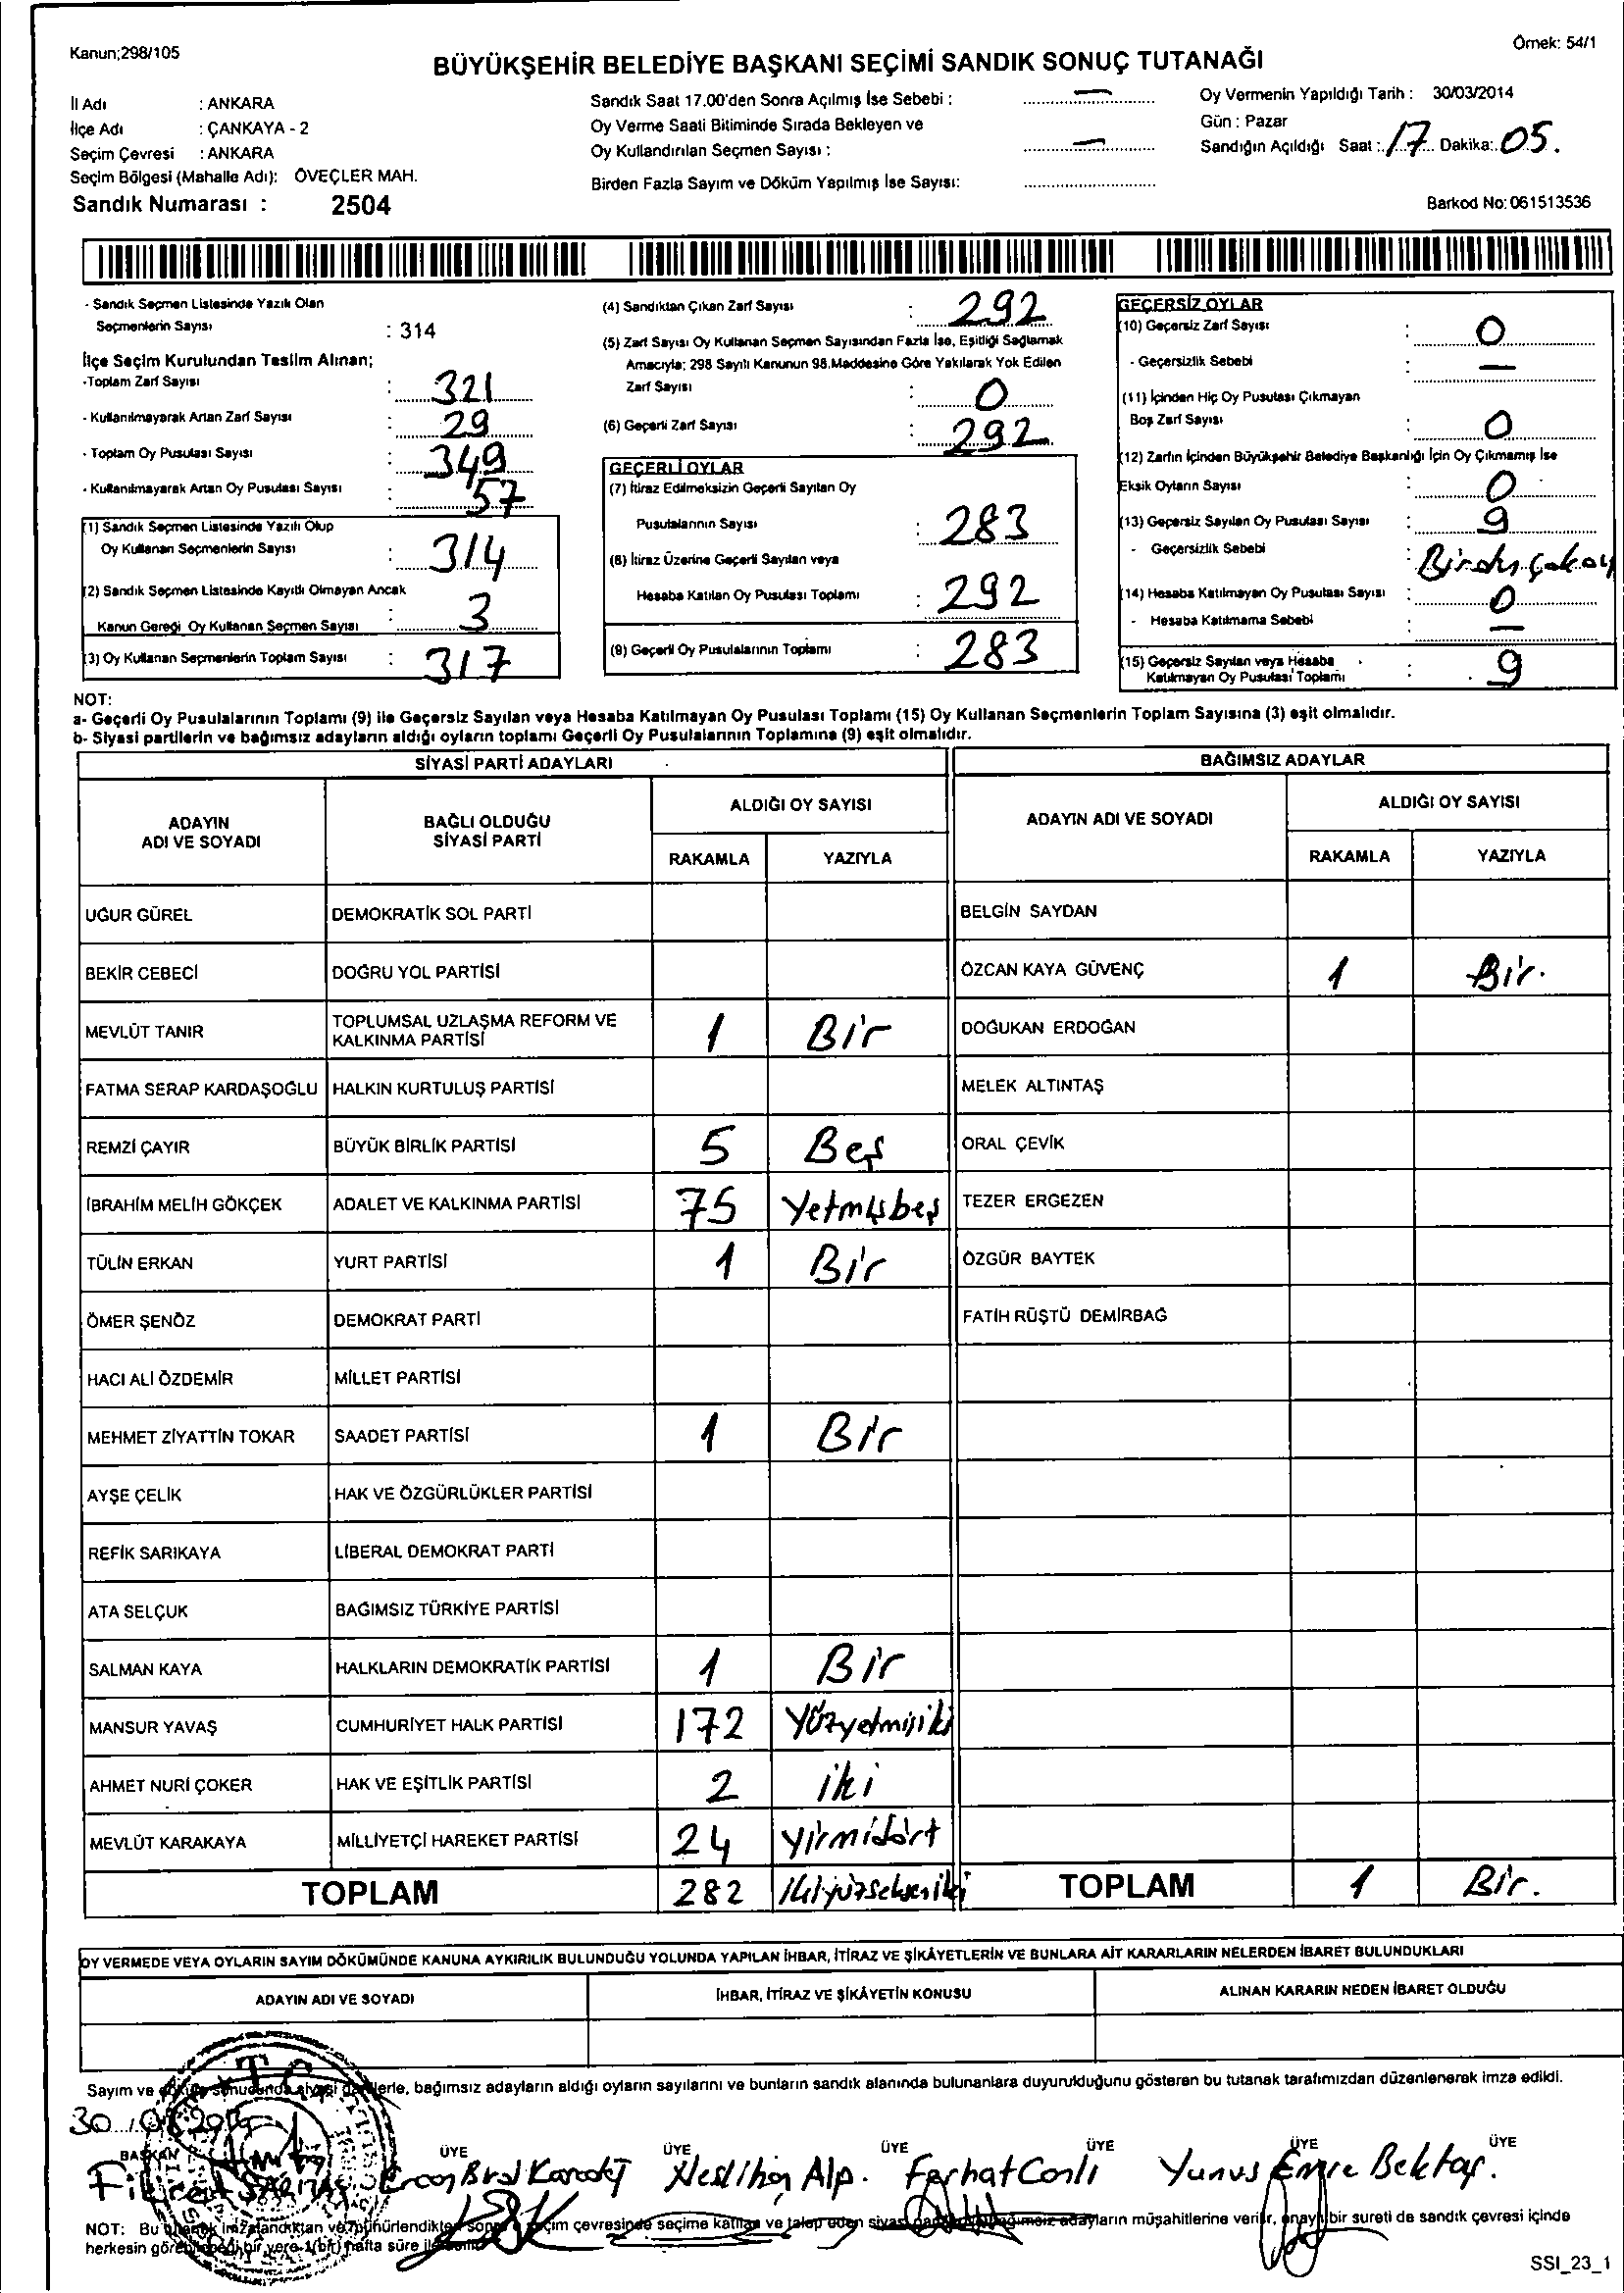 Kanun;298/105
Örnek: 54/1
BÜYÜKŞEHİR BELEDİYE BAŞKANI SEÇİMİ SANDIK SONUÇ TUTANAĞI
İl Adı : ANKARA
İlçe Adı : ÇANKAYA - 2
Seçim Çevresi : ANKARA
Seçim Bölgesi (Mahalle Adı): ÖVEÇLER MAH.
Sandık Numarası : 2504
Sandık Saat 17.00'den Sonra Açılmış İse Sebebi : —
Oy Verme Saati Bitiminde Sırada Bekleyen ve
Oy Kullandırılan Seçmen Sayısı : —
Birden Fazla Sayım ve Döküm Yapılmış İse Sayısı:
Oy Vermenin Yapıldığı Tarih : 30/03/2014
Gün : Pazar
Sandığın Açıldığı Saat : 17 Dakika: 05.
Barkod No: 061513536
- Sandık Seçmen Listesinde Yazılı Olan
Seçmenlerin Sayısı : 314
İlçe Seçim Kurulundan Teslim Alınan;
-Toplam Zarf Sayısı : 321
- Kullanılmayarak Artan Zarf Sayısı : 29
- Toplam Oy Pusulası Sayısı : 349
- Kullanılmayarak Artan Oy Pusulası Sayısı : 57
(1) Sandık Seçmen Listesinde Yazılı Olup
Oy Kullanan Seçmenlerin Sayısı : 314
(2) Sandık Seçmen Listesinde Kayıtlı Olmayan Ancak
Kanun Gereği Oy Kullanan Seçmen Sayısı : 3
(3) Oy Kullanan Seçmenlerin Toplam Sayısı : 317
(4) Sandıktan Çıkan Zarf Sayısı : 292
(5) Zarf Sayısı Oy Kullanan Seçmen Sayısından Fazla İse, Eşitliği Sağlamak
Amacıyla; 298 Sayılı Kanunun 98.Maddesine Göre Yakılarak Yok Edilen
Zarf Sayısı : 0
(6) Geçerli Zarf Sayısı : 292
GEÇERLİ OYLAR
(7) İtiraz Edilmeksizin Geçerli Sayılan Oy
Pusulalarının Sayısı : 283
(8) İtiraz Üzerine Geçerli Sayılan veya
Hesaba Katılan Oy Pusulası Toplamı : 292
(9) Geçerli Oy Pusulalarının Toplamı : 283
GEÇERSİZ OYLAR
(10) Geçersiz Zarf Sayısı : 0
- Geçersizlik Sebebi : —
(11) İçinden Hiç Oy Pusulası Çıkmayan
Boş Zarf Sayısı : 0
(12) Zarfın İçinden Büyükşehir Belediye Başkanlığı İçin Oy Çıkmamış İse
Eksik Oyların Sayısı : 0
(13) Geçersiz Sayılan Oy Pusulası Sayısı : 9
- Geçersizlik Sebebi :
(14) Hesaba Katılmayan Oy Pusulası Sayısı : 0
- Hesaba Katılmama Sebebi : —
(15) Geçersiz Sayılan veya Hesaba
Katılmayan Oy Pusulası Toplamı : 9
NOT:
a- Geçerli Oy Pusulalarının Toplamı (9) ile Geçersiz Sayılan veya Hesaba Katılmayan Oy Pusulası Toplamı (15) Oy Kullanan Seçmenlerin Toplam Sayısına (3) eşit olmalıdır.
b- Siyasi partilerin ve bağımsız adayların aldığı oyların toplamı Geçerli Oy Pusulalarının Toplamına (9) eşit olmalıdır.
SİYASİ PARTİ ADAYLARI
BAĞIMSIZ ADAYLAR
ADAYIN ADI VE SOYADI
BAĞLI OLDUĞU SİYASİ PARTİ
ALDIĞI OY SAYISI
RAKAMLA YAZIYLA
ADAYIN ADI VE SOYADI
ALDIĞI OY SAYISI
RAKAMLA YAZIYLA
UĞUR GÜREL DEMOKRATİK SOL PARTİ BELGİN SAYDAN
BEKİR CEBECİ DOĞRU YOL PARTİSİ ÖZCAN KAYA GÜVENÇ 1 Bir.
MEVLÜT TANIR TOPLUMSAL UZLAŞMA REFORM VE KALKINMA PARTİSİ 1 Bir DOĞUKAN ERDOĞAN
FATMA SERAP KARDAŞOĞLU HALKIN KURTULUŞ PARTİSİ MELEK ALTINTAŞ
REMZİ ÇAYIR BÜYÜK BİRLİK PARTİSİ 5 Beş ORAL ÇEVİK
İBRAHİM MELİH GÖKÇEK ADALET VE KALKINMA PARTİSİ 75 Yetmişbeş TEZER ERGEZEN
TÜLİN ERKAN YURT PARTİSİ 1 Bir ÖZGÜR BAYTEK
ÖMER ŞENÖZ DEMOKRAT PARTİ FATİH RÜŞTÜ DEMİRBAĞ
HACI ALİ ÖZDEMİR MİLLET PARTİSİ
MEHMET ZİYATTİN TOKAR SAADET PARTİSİ 1 Bir
AYŞE ÇELİK HAK VE ÖZGÜRLÜKLER PARTİSİ
REFİK SARIKAYA LİBERAL DEMOKRAT PARTİ
ATA SELÇUK BAĞIMSIZ TÜRKİYE PARTİSİ
SALMAN KAYA HALKLARIN DEMOKRATİK PARTİSİ 1 Bir
MANSUR YAVAŞ CUMHURİYET HALK PARTİSİ 172 Yüzyetmişiki
AHMET NURİ ÇOKER HAK VE EŞİTLİK PARTİSİ 2 iki
MEVLÜT KARAKAYA MİLLİYETÇİ HAREKET PARTİSİ 24 Yirmidört
TOPLAM 282 İkiyüzsekseniki TOPLAM 1 Bir.
OY VERMEDE VEYA OYLARIN SAYIM DÖKÜMÜNDE KANUNA AYKIRILIK BULUNDUĞU YOLUNDA YAPILAN İHBAR, İTİRAZ VE ŞİKÂYETLERİN VE BUNLARA AİT KARARLARIN NELERDEN İBARET BULUNDUKLARI
ADAYIN ADI VE SOYADI İHBAR, İTİRAZ VE ŞİKÂYETİN KONUSU ALINAN KARARIN NEDEN İBARET OLDUĞU
Sayım ve döküm sonucunda siyasi partilerle, bağımsız adayların aldığı oyların sayılarını ve bunların sandık alanında bulunanlara duyurulduğunu gösteren bu tutanak tarafımızdan düzenlenerek imza edildi.
T.C.
BAŞKAN ÜYE ÜYE ÜYE ÜYE ÜYE ÜYE
Neslihan Alp. Ferhat Canlı Yunus Emre Bektaş.
NOT: Bu tutanak imzalandıktan ve mühürlendikten sonra seçim çevresinde seçime katılan ve talep eden siyasi bağımsız adayların müşahitlerine verilir, onaylı bir sureti de sandık çevresi içinde
herkesin görebileceği bir yere 1(bir) hafta süre ile
SSI_23_1